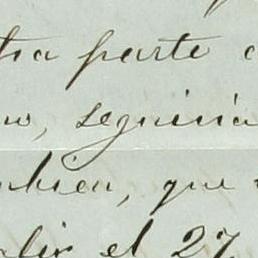 tra parte
no, seguiria
mbien, que
alir el 27